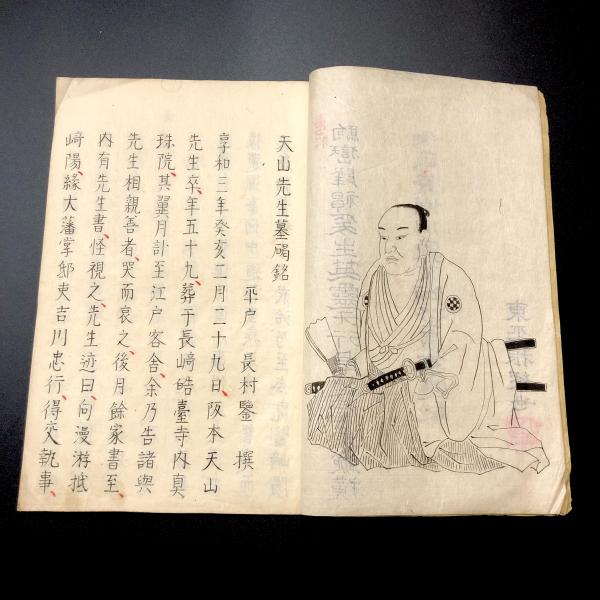 天山先生墓碣銘
平戸 長村鑒 撰
享和三年癸亥二月二十九日、阪本天山
先生卒、年五十九、葬于長﨑皓臺寺内真
珠院、其翼月訃至江戸客舎、余乃告諸與
先生相親善者、哭而哀之、後月餘家書至、
内有先生書、怪視之、先生迹曰、向漫游抵
﨑陽、緣大藩掌邸吏吉川忠行、得交執事、